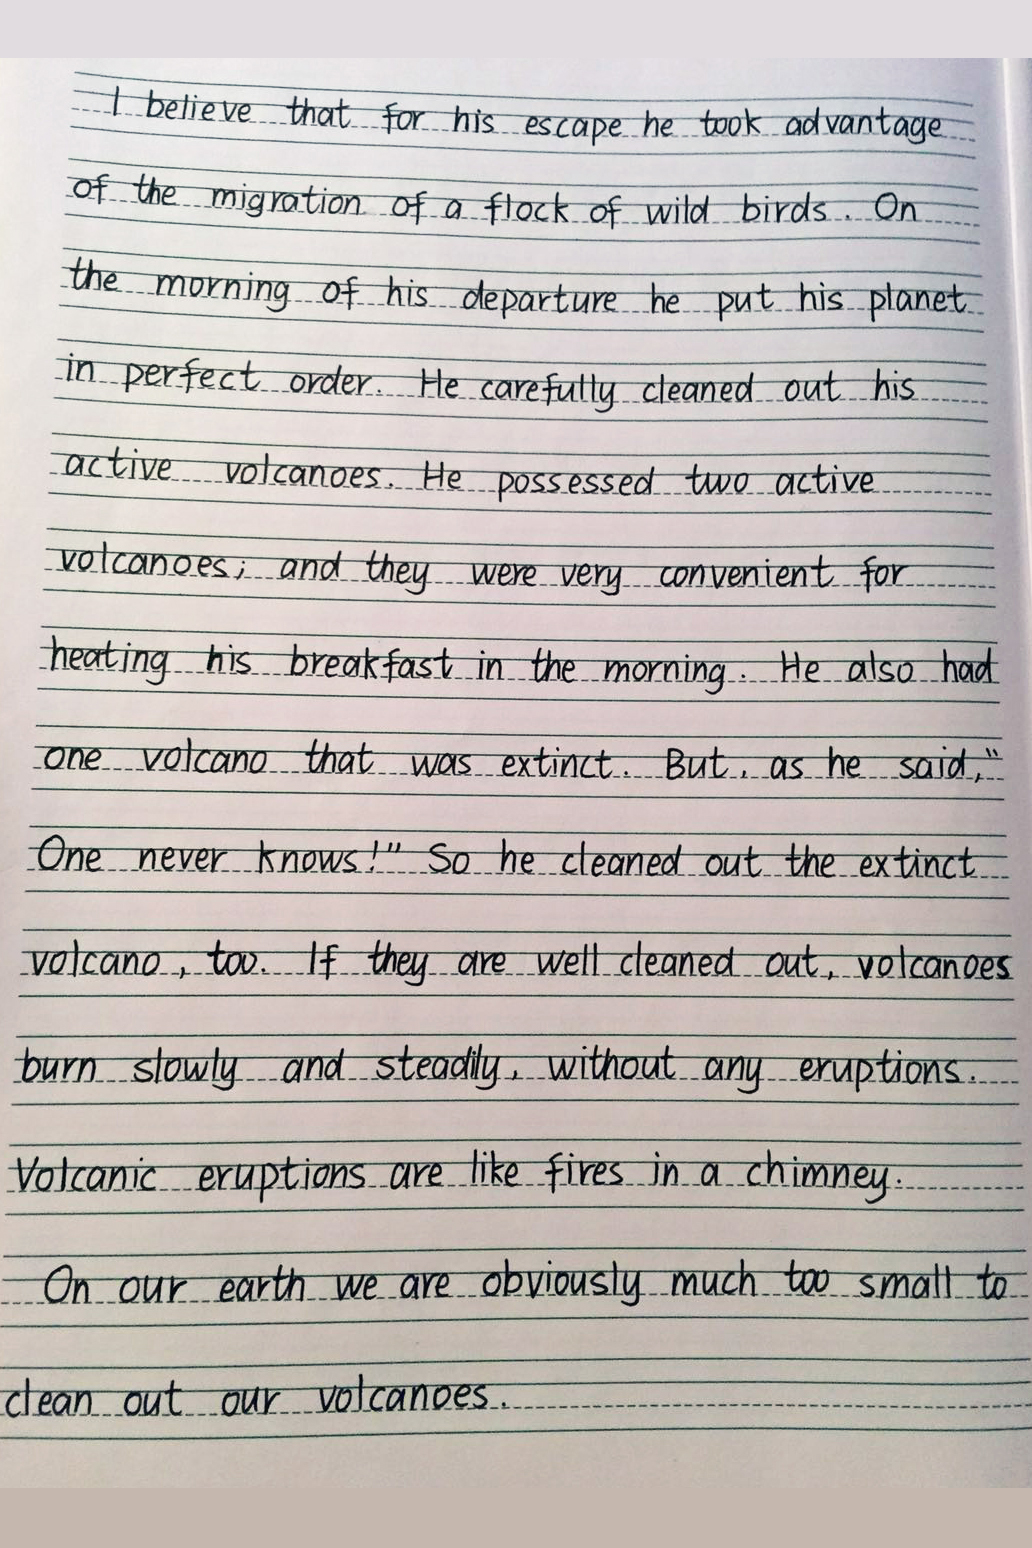 I believe that for his escape he took advantage
of the migration of a flock of wild birds. On
the morning of his departure he put his planet
in perfect order. He carefully cleaned out his
active volcanoes. He possessed two active
volcanoes; and they were very convenient for
heating his breakfast in the morning. He also had
one volcano that was extinct. But, as he said,"
One never knows!" So he cleaned out the extinct
volcano, too. If they are well cleaned out, volcanoes
burn slowly and steadily, without any eruptions.
Volcanic eruptions are like fires in a chimney.
On our earth we are obviously much too small to
clean out our volcanoes.